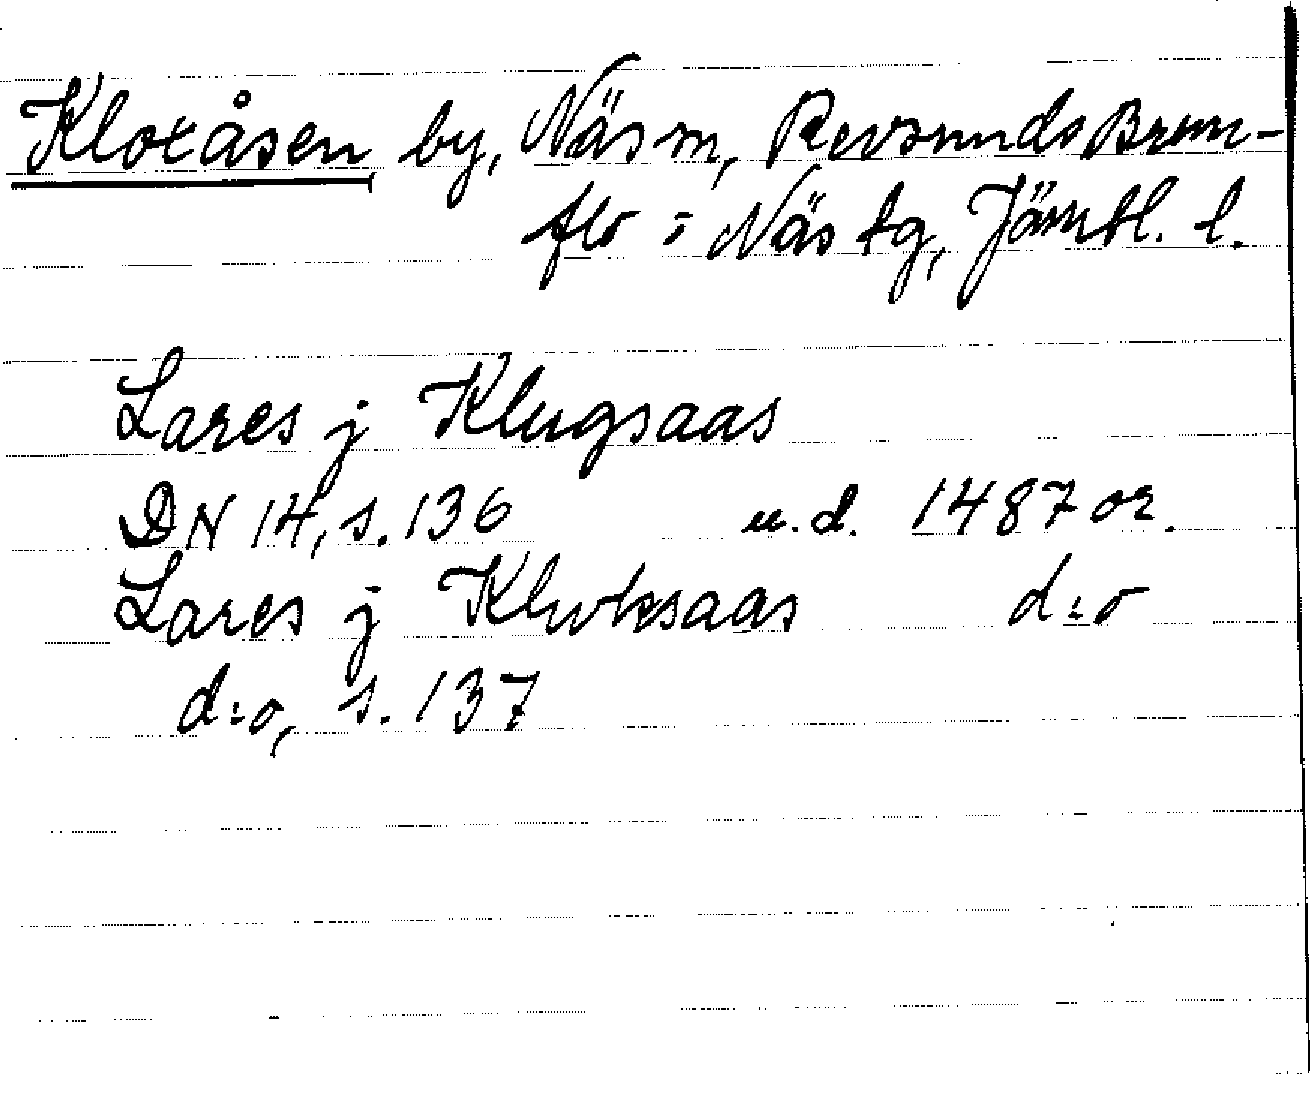 Kloxåsen by, Näs sn, Revsunds Brun-
flo i Näs tg, Jämtl. l.
Lares j Klugsaas
DN 14, s. 136 u.d. 1487 or.
Lares j Klwksaas d:o
d:o, s. 137